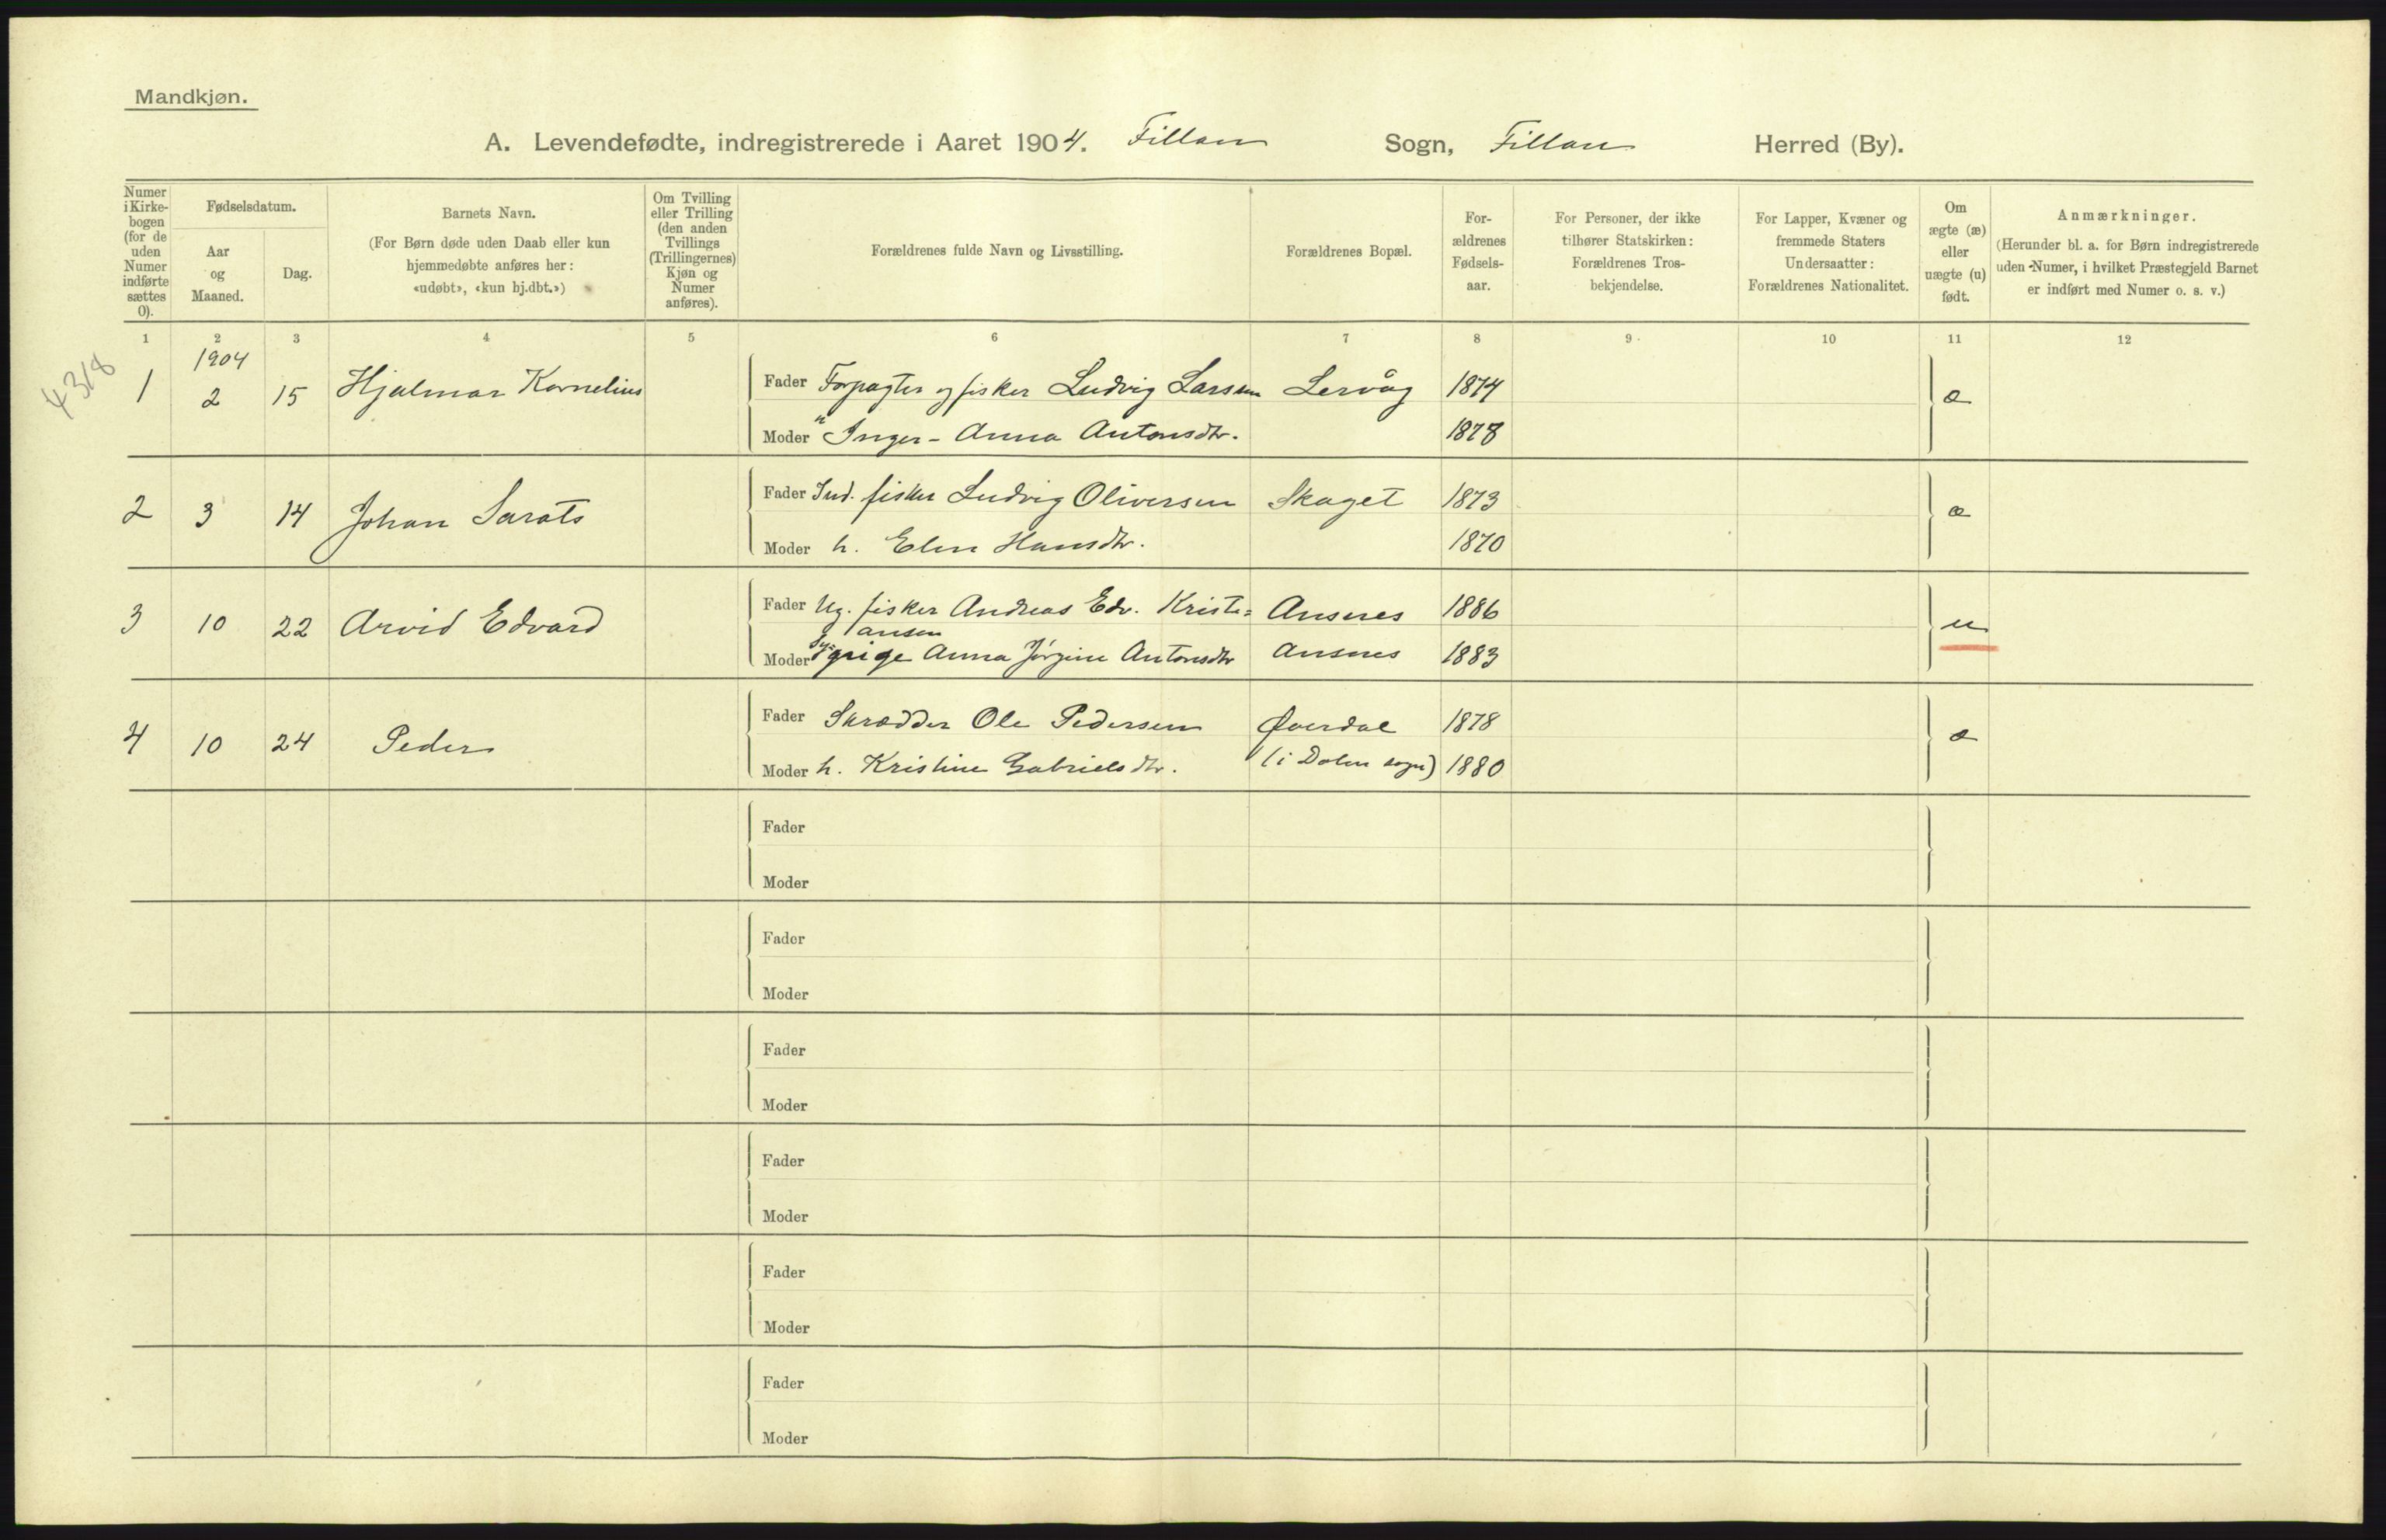 Mandkjøn.
A. Levendefødte, indregistrerede i Aaret 1904. Fillan Sogn, Fillan Herred (By).
Numer i Kirkebogen (for de uden Numer indførte sættes 0).
Fødselsdatum.
Aar og Maaned.
Dag.
Barnets Navn.
(For Børn døde uden Daab eller kun hjemmedøbte anføres her: «udøbt», «kun hj.dbt.»)
Om Tvilling eller Trilling (den anden Tvillings (Trillingernes) Kjøn og Numer anføres).
Forældrenes fulde Navn og Livsstilling.
Forældrenes Bopæl.
Forældrenes Fødselsaar.
For Personer, der ikke tilhører Statskirken: Forældrenes Trosbekjendelse.
For Lapper, Kvæner og fremmede Staters Undersaatter: Forældrenes Nationalitet.
Om ægte (æ) eller uægte (u) født.
Anmærkninger.
(Herunder bl. a. for Børn indregistrerede uden Numer, i hvilket Præstegjeld Barnet er indført med Numer o. s. v.)
1 2 3 4 5 6 7 8 9 10 11 12
4318
1904
1 2 15 Hjalmar Kornelius Fader Forpagter og fisker Ludvig Larsen Lervåg 1874 æ
Moder " Inger-Anna Antonsdtr. 1878
2 3 14 Johan Sarats Fader Ind. fisker Ludvig Oliversen Skaget 1873 æ
Moder h. Elen Hansdtr. 1870
3 10 22 Arvid Edvard Fader Ug. fisker Andreas Edv. Kristi= Ansnes 1886 u
ansen
Moder Sy=pige Anna Jørgine Antonsdtr Ansnes 1883
4 10 24 Peder Fader Skrædder Ole Pedersen Øverdal 1878 æ
Moder h. Kristine Gabrielsdtr. (i Dolm sogn) 1880
Fader
Moder
Fader
Moder
Fader
Moder
Fader
Moder
Fader
Moder
Fader
Moder